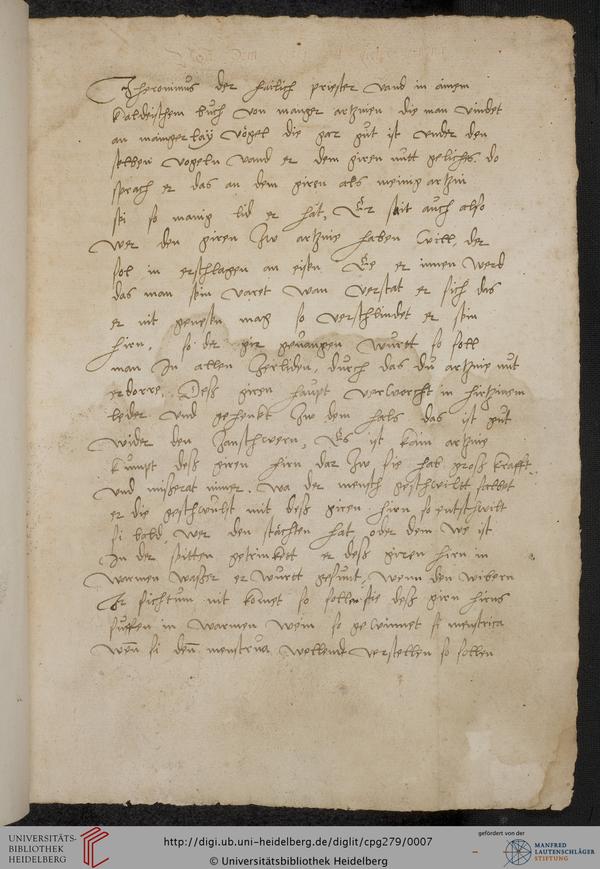 Jheronimus der hailich priester vand in ainem
kaldeischem buch von manger artznien die man vindet
an mainger lay vögel die gar gut ist vnder den
selben vogeln vand er dem giren nütt gelichs do
sprach er das an dem giren als meinig artzin
sei so manig lid er hat, Er sait auch also
wer den giren zw artznie haben will, der
sol in erschlagen an eisen Ee er innen werd
das man sein varet wan verstat er sich das
er nit genesen mag so verschlindet er sein
hirn, so der gir geuangen wurtt so soll
man In allen zerliden, durch das du artznie nut
erdorre. Deß giren haupt verworcht in hirtzinem
leder vnd gehenkt zw dem hals das ist gut
wider den zanschwern, Es ist kain artznie
kumpt deß giren hirn dar zw sie hab groß krafft
vnd mißerat nimer. wa der mensch geschwiltt salbet
er die geschwulst mit deß giren hirn so entschwilt
si bald wer den stächten hat oder dem we ist
In der seitten getrinkett er deß giren hirn in
warmen waßer er wurtt gesunt, wenn den wibern
Ir sichtum nit komet so sollen sie deß girn hirns
suffen in warmen wein so gewinnet si menstrua
wen si den menstrua wellend verstellen so sollen
UNIVERSITÄTS-
BIBLIOTHEK
HEIDELBERG
http://digi.ub.uni-heidelberg.de/diglit/cpg279/0007
© Universitätsbibliothek Heidelberg
gefördert von der
MANFRED
LAUTENSCHLÄGER
STIFTUNG